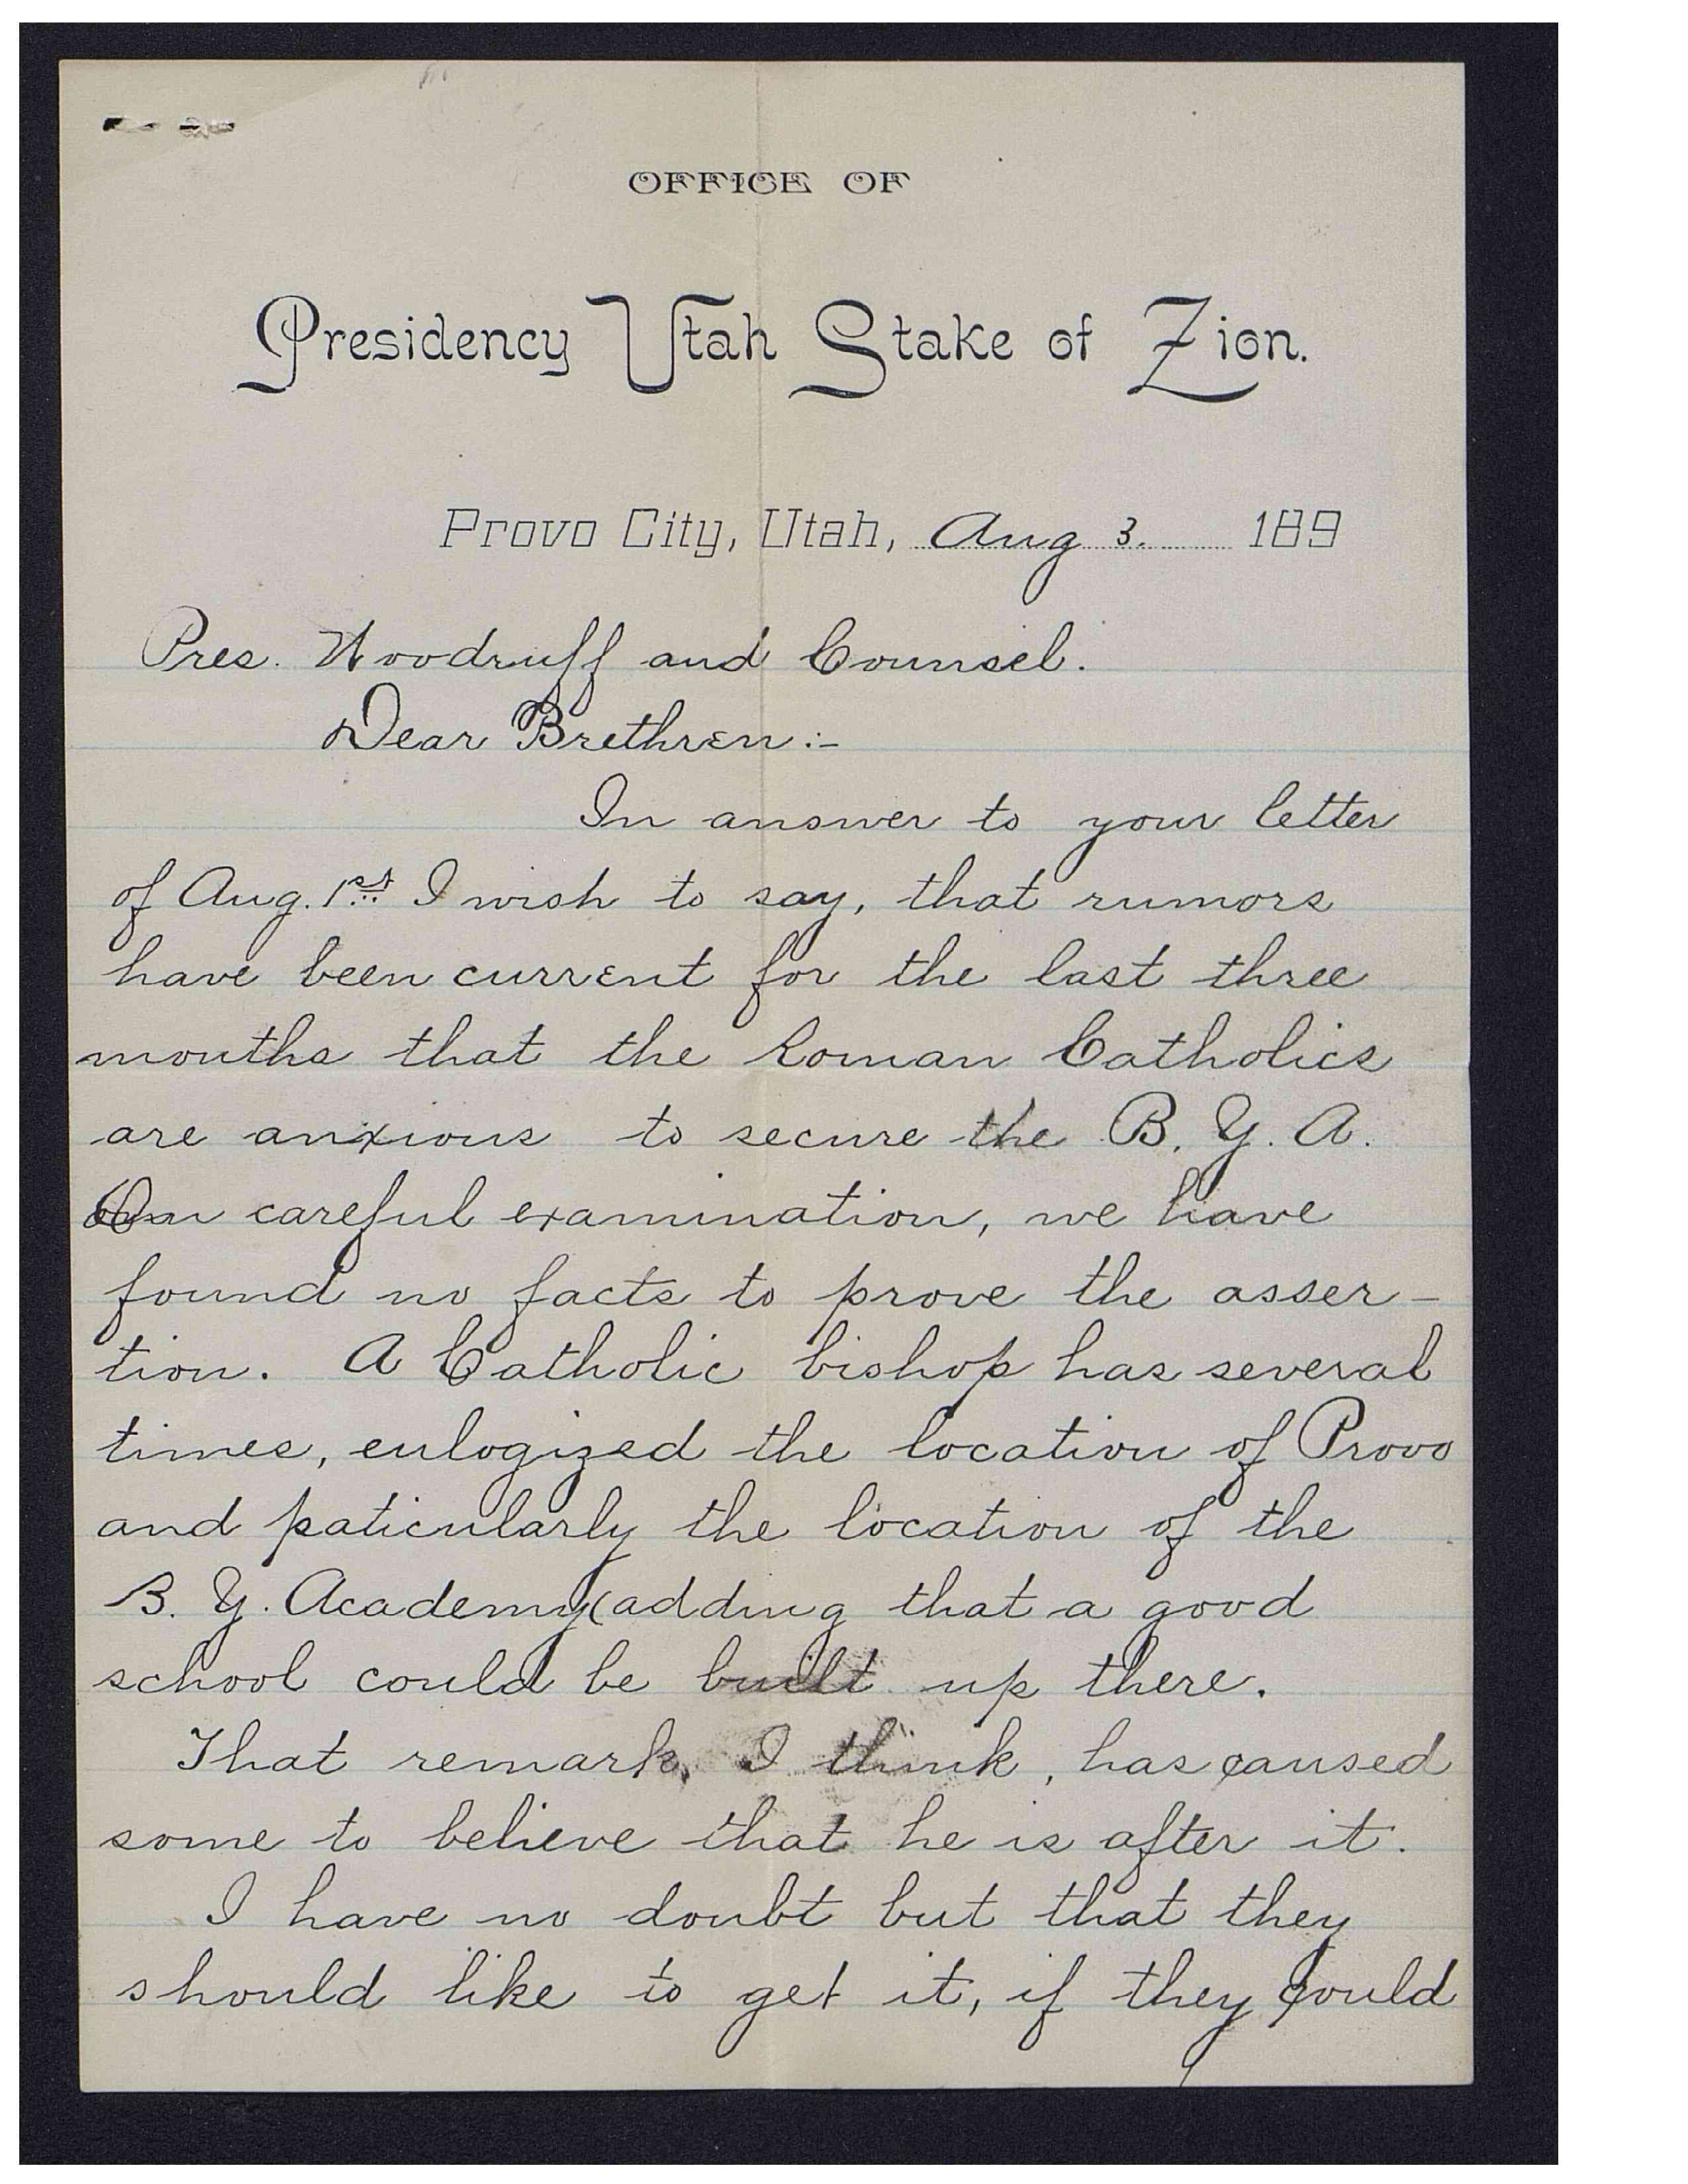 OFFICE OF
Presidency Utah Stake of Zion.
Provo City, Utah, Aug 3. 189
Pres. Woodruff and Counsel.
Dear Brethren:-
In answer to your letter
of Aug. 1st I wish to say, that rumors
have been current for the last three
months that the Roman Catholics
are anxious to secure the B. Y. A.
On careful examination, we have
found no facts to prove the asser-
tion. A Catholic bishop has several
times, eulogized the location of Provo
and paticularly the location of the
B. Y. Academy (adding that a good
school could be built up there.
That remark, I think, has caused
some to believe that he is after it.
I have no doubt but that they
should like to get it, if they could